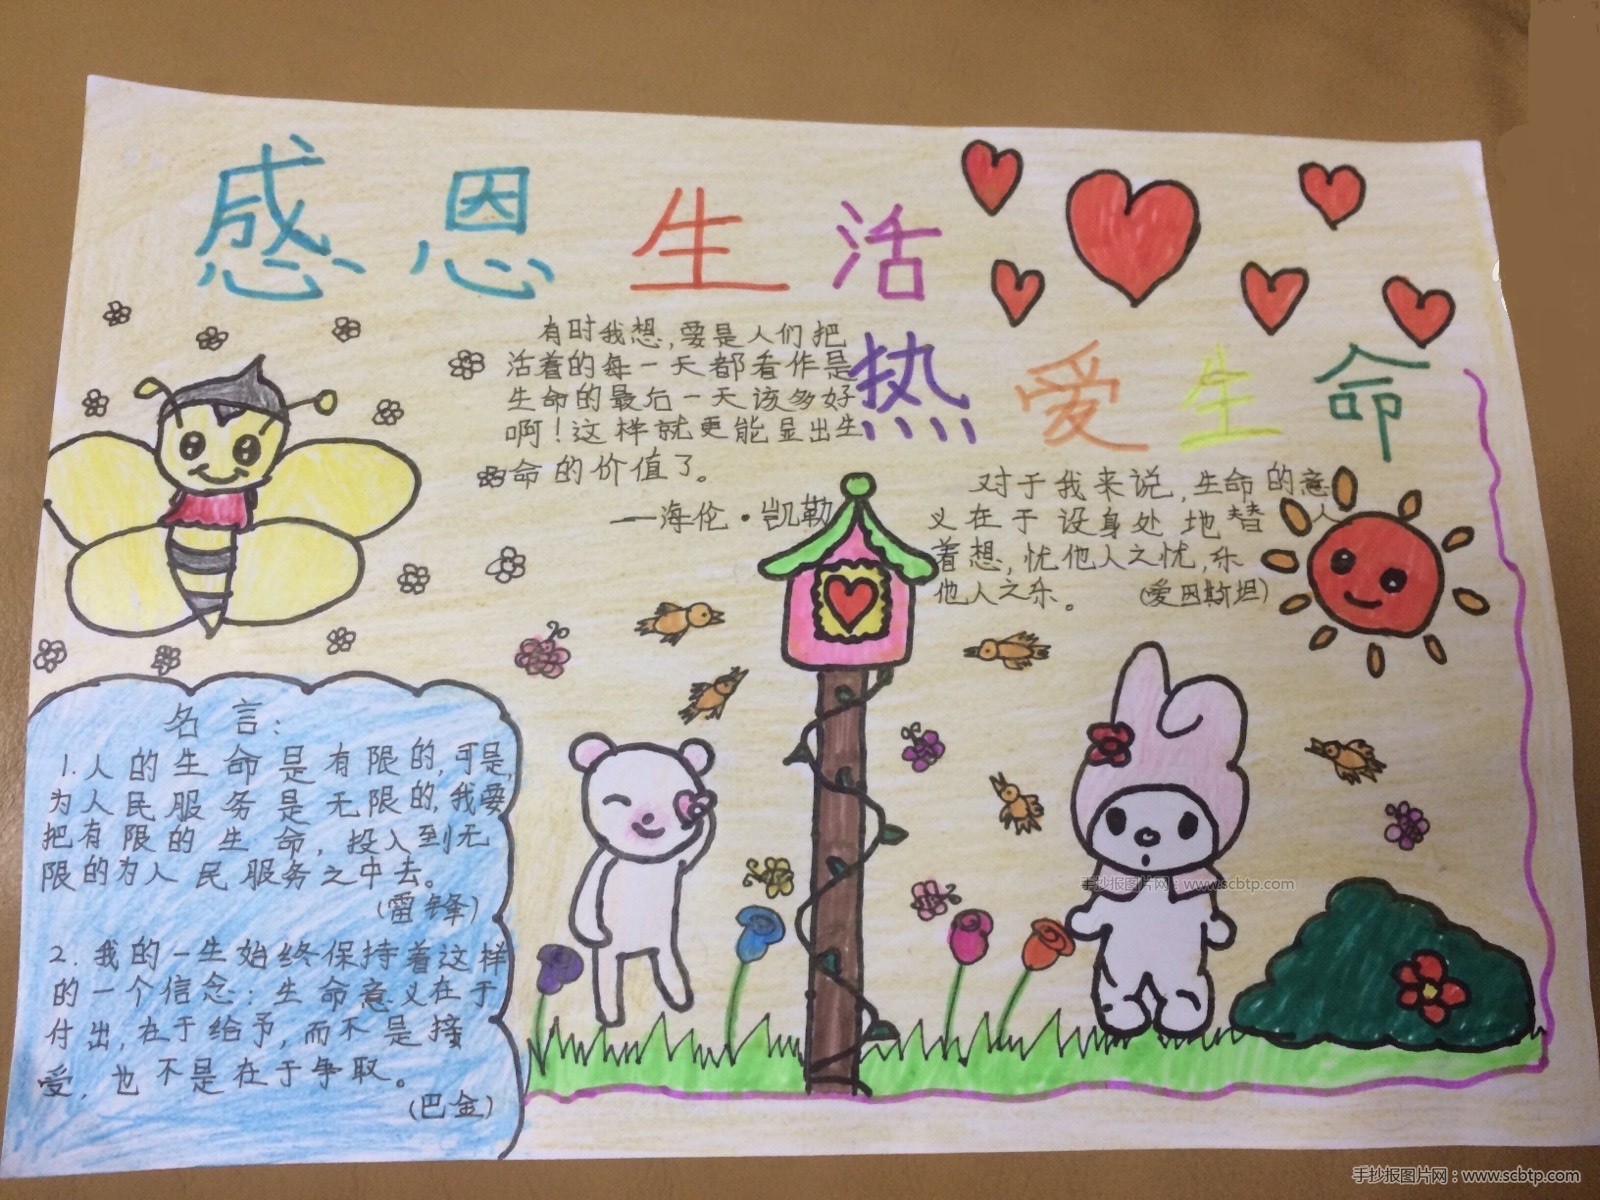 感恩生活
热爱生命
有时我想,要是人们把
活着的每一天都看作是
生命的最后一天该多好
啊!这样就更能显出生
命的价值了。
——海伦·凯勒
对于我来说,生命的意
义在于设身处地替人
着想,忧他人之忧,乐
他人之乐。(爱因斯坦)
名言:
1.人的生命是有限的,可是,
为人民服务是无限的,我要
把有限的生命,投入到无
限的为人民服务之中去。
(雷锋)
2.我的一生始终保持着这样
的一个信念:生命意义在于
付出,在于给予,而不是接
受,也不是在于争取。
(巴金)
手抄报图片网:www.scbtp.com
手抄报图片网:www.scbtp.com